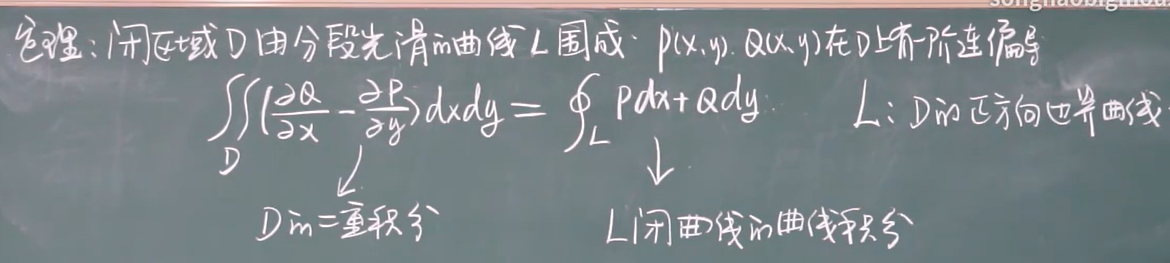 定理:闭区域D由分段光滑的曲线L围成. P(x,y). Q(x,y)在D上有一阶连偏导
∬_D(∂Q/∂x - ∂P/∂y)dxdy = ∮_L Pdx+Qdy. L:D的正方向边界曲线
D的二重积分 L闭曲线的曲线积分